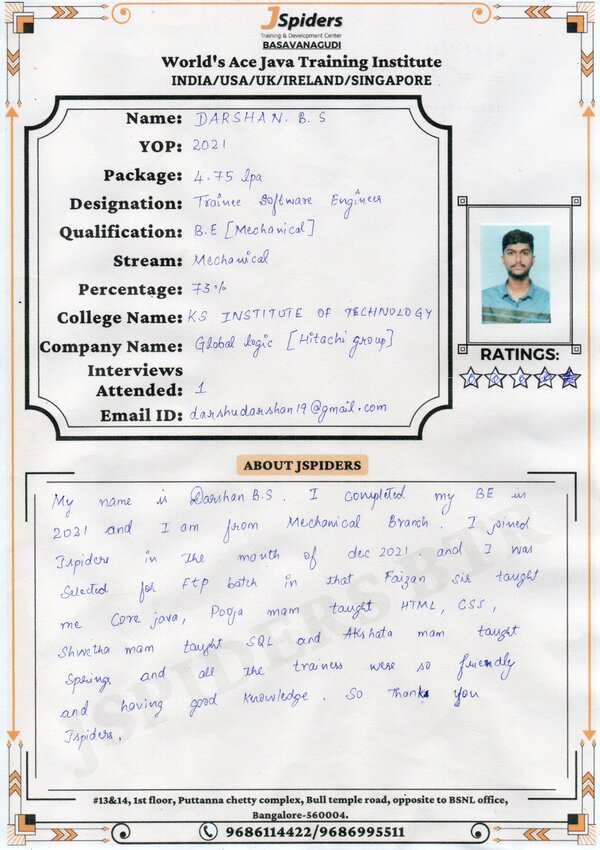 JSpiders
Training & Development Center
BASAVANAGUDI
World's Ace Java Training Institute
INDIA/USA/UK/IRELAND/SINGAPORE
Name: DARSHAN. B. S
YOP: 2021
Package: 4.75 lpa
Designation: Trainee Software Engineer
Qualification: B.E [Mechanical]
Stream: Mechanical
Percentage: 73%
College Name: KS INSTITUTE OF TECHNOLOGY
Company Name: Global logic [Hitachi group]
Interviews
Attended: 1
Email ID: darshudarshan19@gmail.com
RATINGS:
ABOUT JSPIDERS
My name is Darshan B.S. I completed my BE in
2021 and I am from Mechanical Branch. I joined
Jspiders in The month of dec 2021. and I was
Selected for FTP batch in that Faizan sir taught
me Core java, Pooja mam taught HTML, CSS,
Shwetha mam taught SQL and Akshata mam taught
Springs and all The trainers were so friendly
and having good knowledge. So Thank you
Jspiders.
JSPIDERS BTR
#13&14, 1st floor, Puttanna chetty complex, Bull temple road, opposite to BSNL office,
Bangalore-560004.
9686114422/9686995511